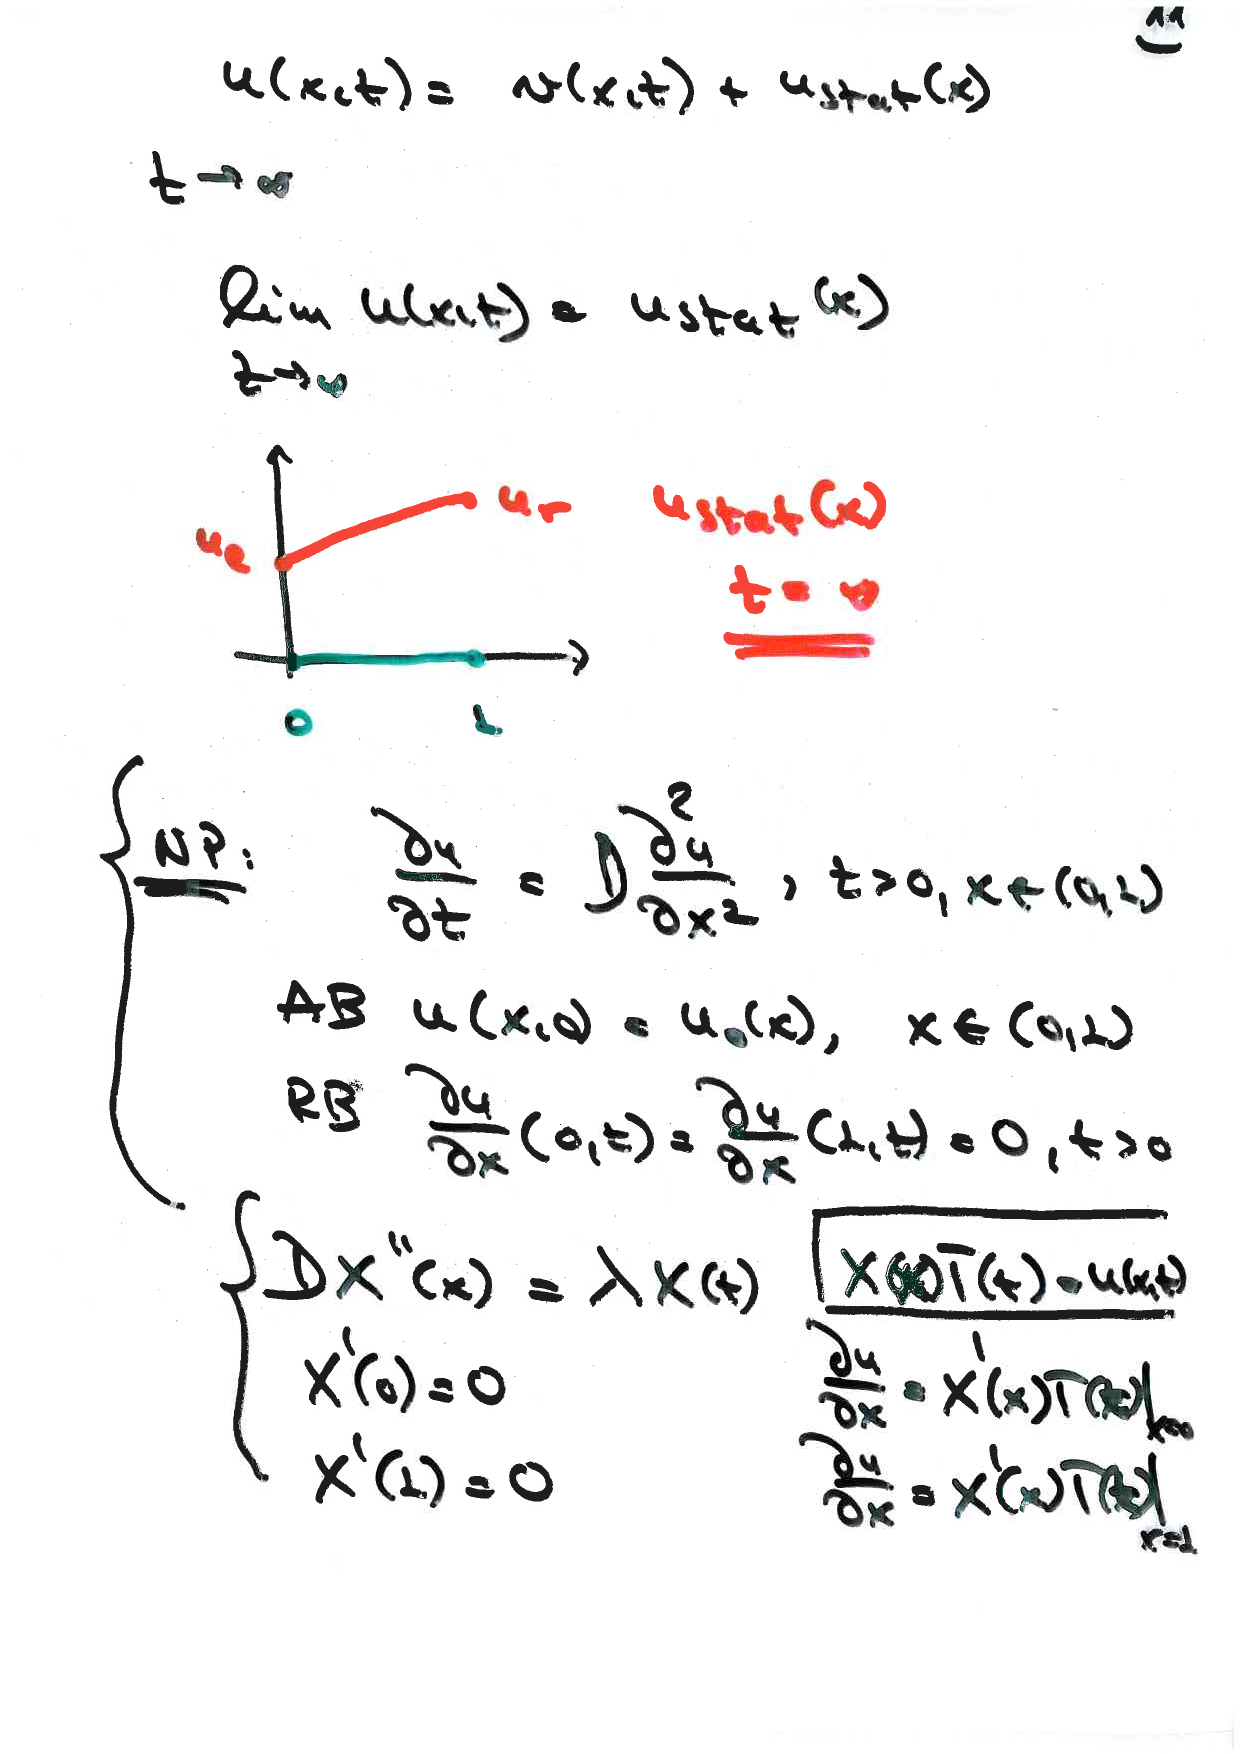 11
u(x,t) = v(x,t) + u_stat(x)
t → ∞
lim u(x,t) = u_stat(x)
t→∞
u_r u_stat(x)
u_e
t = ∞
0 L
NP: ∂u/∂t = D ∂²u/∂x², t>0, x ∈ (0,L)
AB u(x,0) = u_0(x), x ∈ (0,L)
RB ∂u/∂x (0,t) = ∂u/∂x (L,t) = 0, t>0
D X''(x) = λ X(t) X(x)T(t) = u(x,t)
X'(0) = 0 ∂u/∂x = X'(x)T(t)|x=0
X'(L) = 0 ∂u/∂x = X'(x)T(t)|x=L